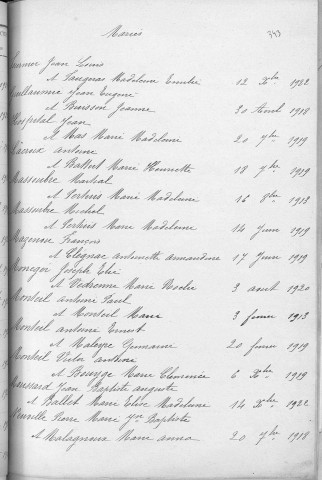 Mariés
343
Jean Louis
et Madeleine 12 Xbre 1922
Guillaume Jean Eugène
et Buisson Jeanne 30 Avril 1918
Hospital Jean
et Mas Marie Madeleine 20 7bre 1919
Antoine
et Ballet Marie Henriette 18 7bre 1919
Massoubre Martial
et Marie Madeleine 16 8bre 1918
Massoubre Michel
et Marie Madeleine 14 Juin 1919
Mazenon François
et Antoinette Armandine 17 Juin 1919
Joseph Elie
et Vedrenne Marie 3 aout 1920
Monteil Antoine Paul
et Monteil Marie 3 février 1913
Monteil Antoine Ernest
et Maleyre Germaine 20 février 1919
Monteil Victor Anthoine
et Marie Clémence 6 Xbre 1919
Moussard Jean Baptiste auguste
et Ballet Marie Elise Madeleine 14 Xbre 1922
Pierre Marie Baptiste
et Malagnoux Marie anna 20 7bre 1918